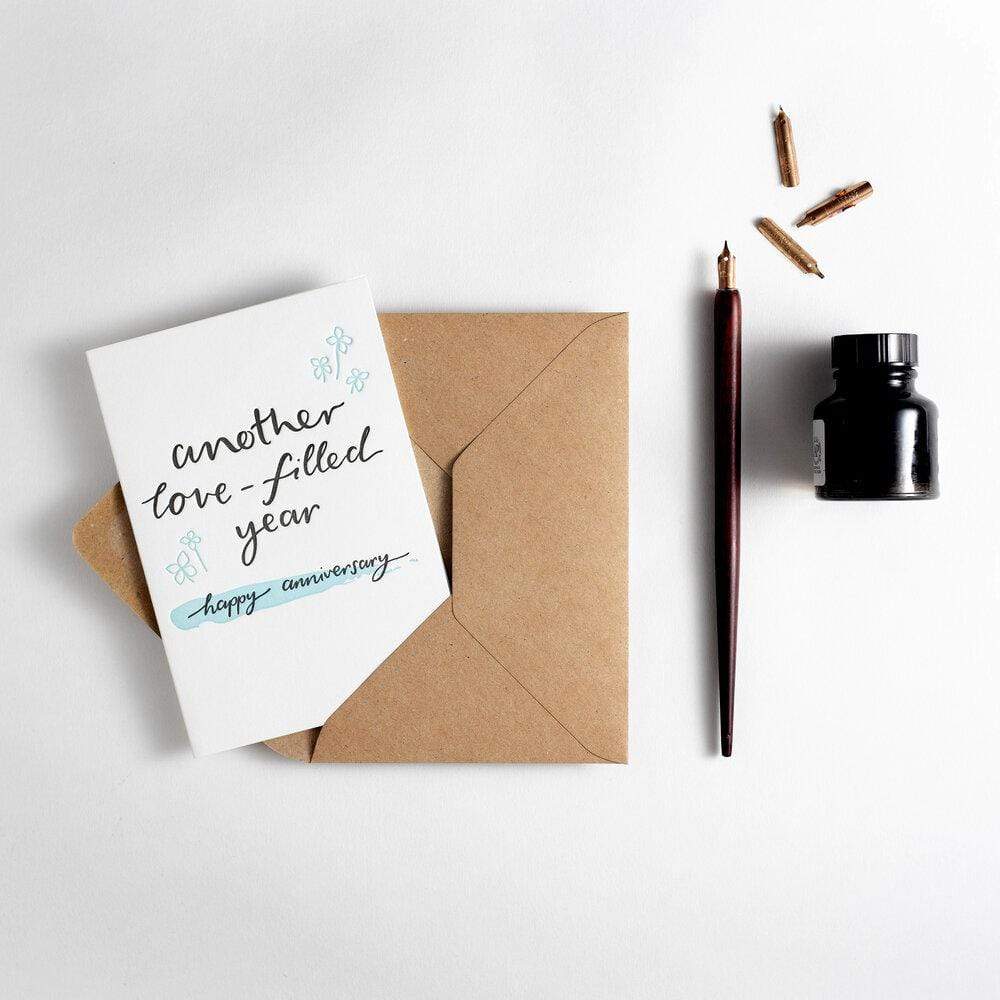 another
love-filled
year
happy anniversary